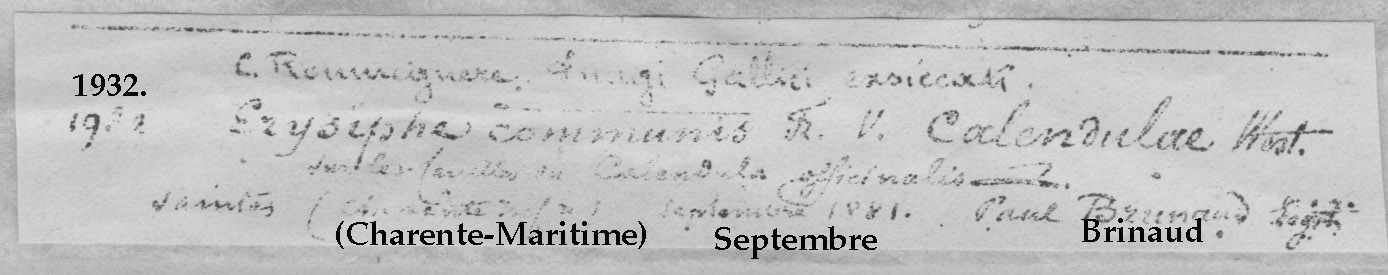 C. Roumeguere. Fungi Gallici exsiccati.
1932.
1932 Erysiphe communis Fr. V. Calendulae West.
sur les feuilles du Calendula officinalis
Saintes ( ) Septembre 1881. Paul Brunaud
(Charente-Maritime) Septembre Brinaud